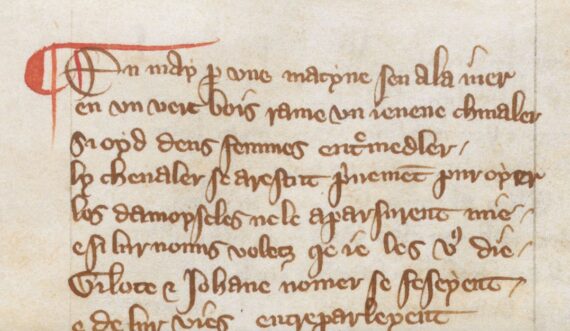 En may p vne matyne sen ala iuer
en vn vert bois rame vn ieuene chiualer
si oyd deus femmes entremedler
ly cheualer se arestut priuement pur oyer
les damoyseles ne le aparsurent mie
e si lur nouns voletz qe ie les vo die
Gilote & Johane nomer se feseyent
e de lur vies entreparleyent